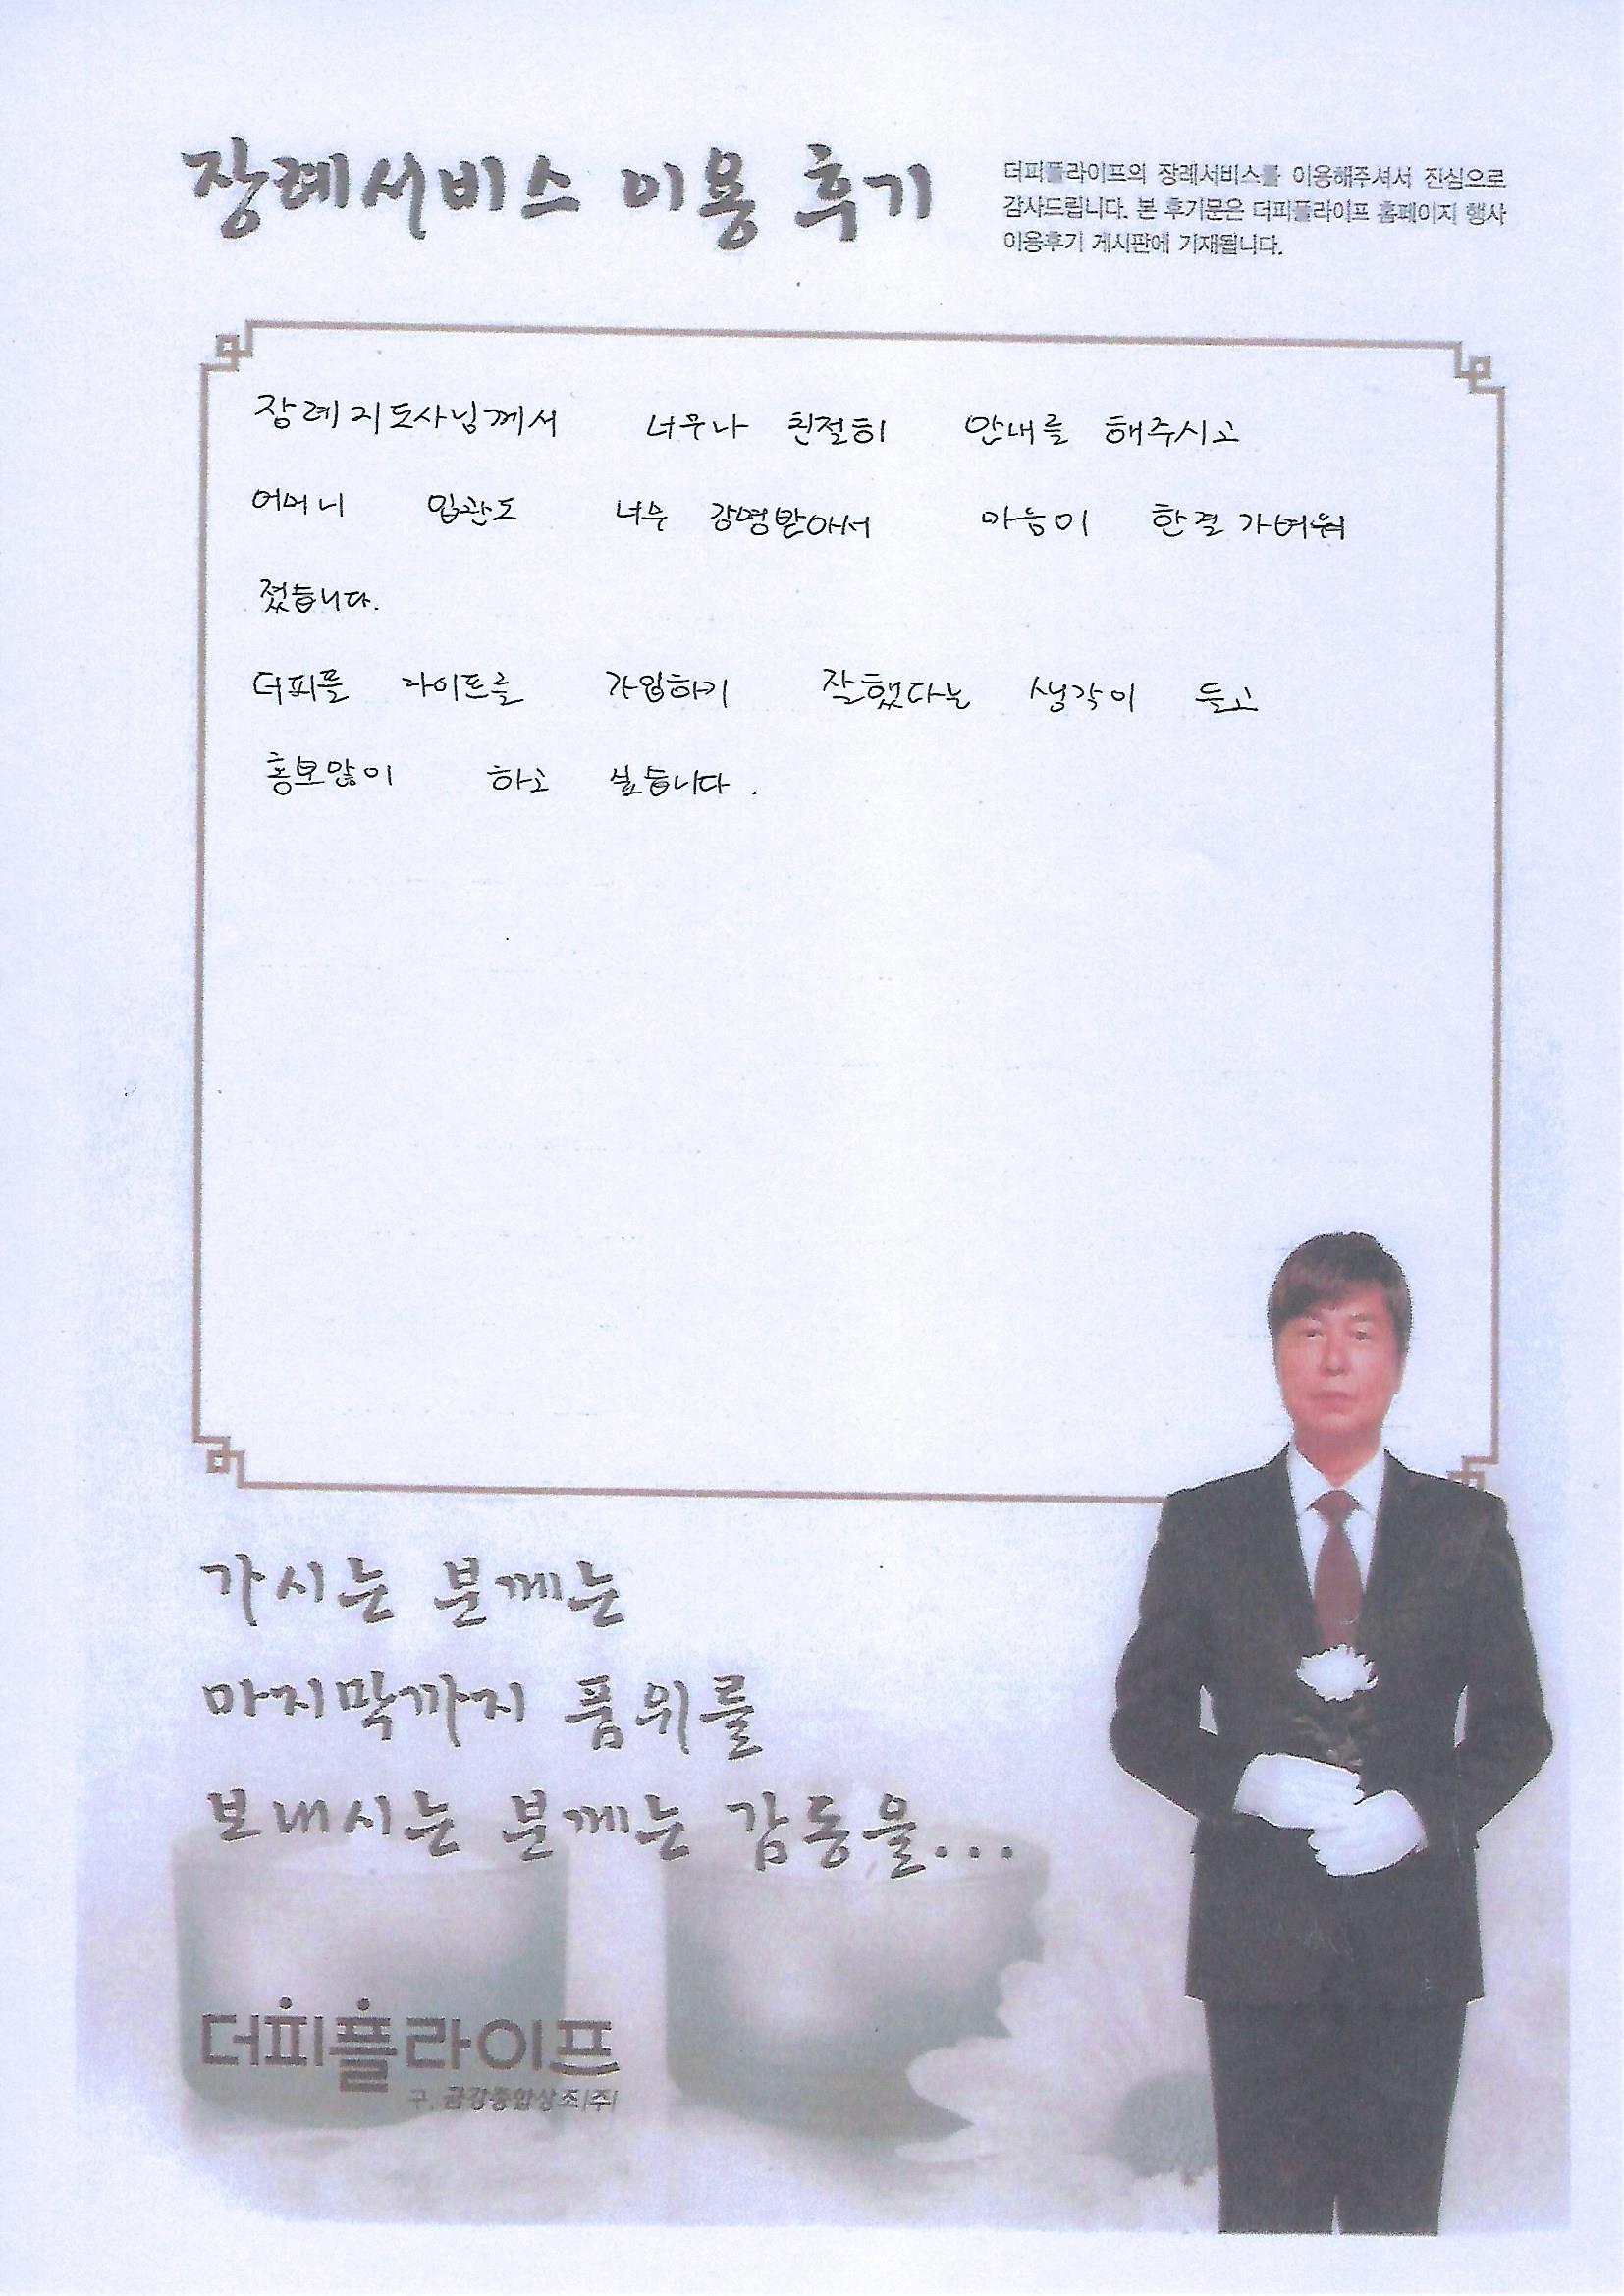 장례서비스 이용 후기
더피플라이프의 장례서비스를 이용해주셔서 진심으로
감사드립니다. 본 후기문은 더피플라이프 홈페이지 행사
이용후기 게시판에 기재됩니다.
장례지도사님께서 너무나 친절히 안내를 해주시고
어머니 입관도 너무 감명받아서 마음이 한결 가벼워
졌습니다.
더피플 라이프를 가입하기 잘했다는 생각이 들고
홍보많이 하고 싶습니다.
가시는 분께는
마지막까지 품위를
보내시는 분께는 감동을...
더피플라이프
구. 금강종합상조(주)